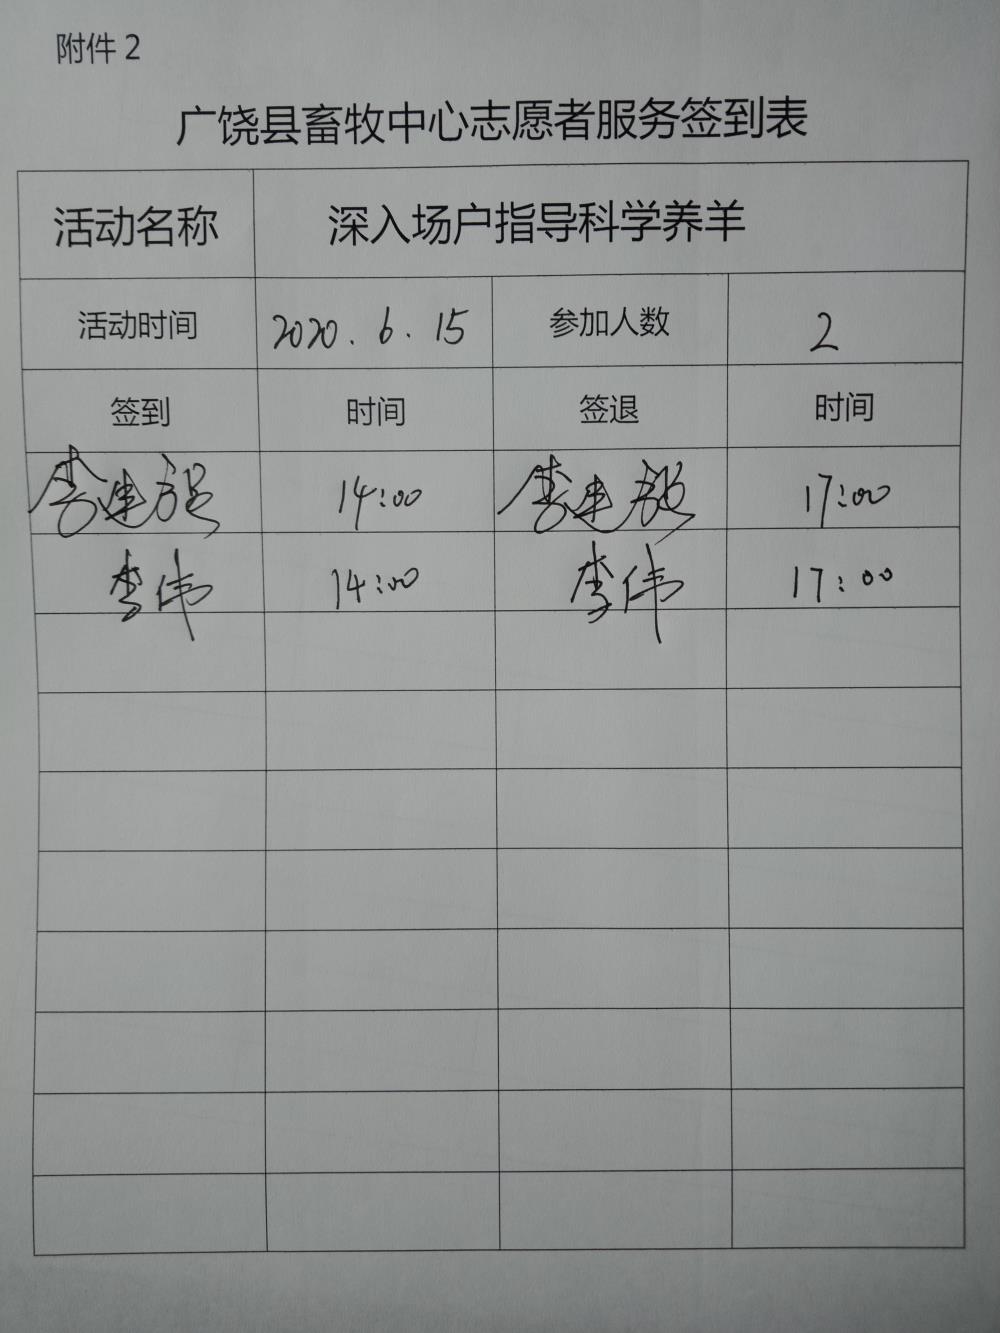 附件2
广饶县畜牧中心志愿者服务签到表
活动名称 深入场户指导科学养羊
活动时间 2020.6.15 参加人数 2
签到 时间 签退 时间
李建 14:00 李建 17:00
李伟 14:00 李伟 17:00